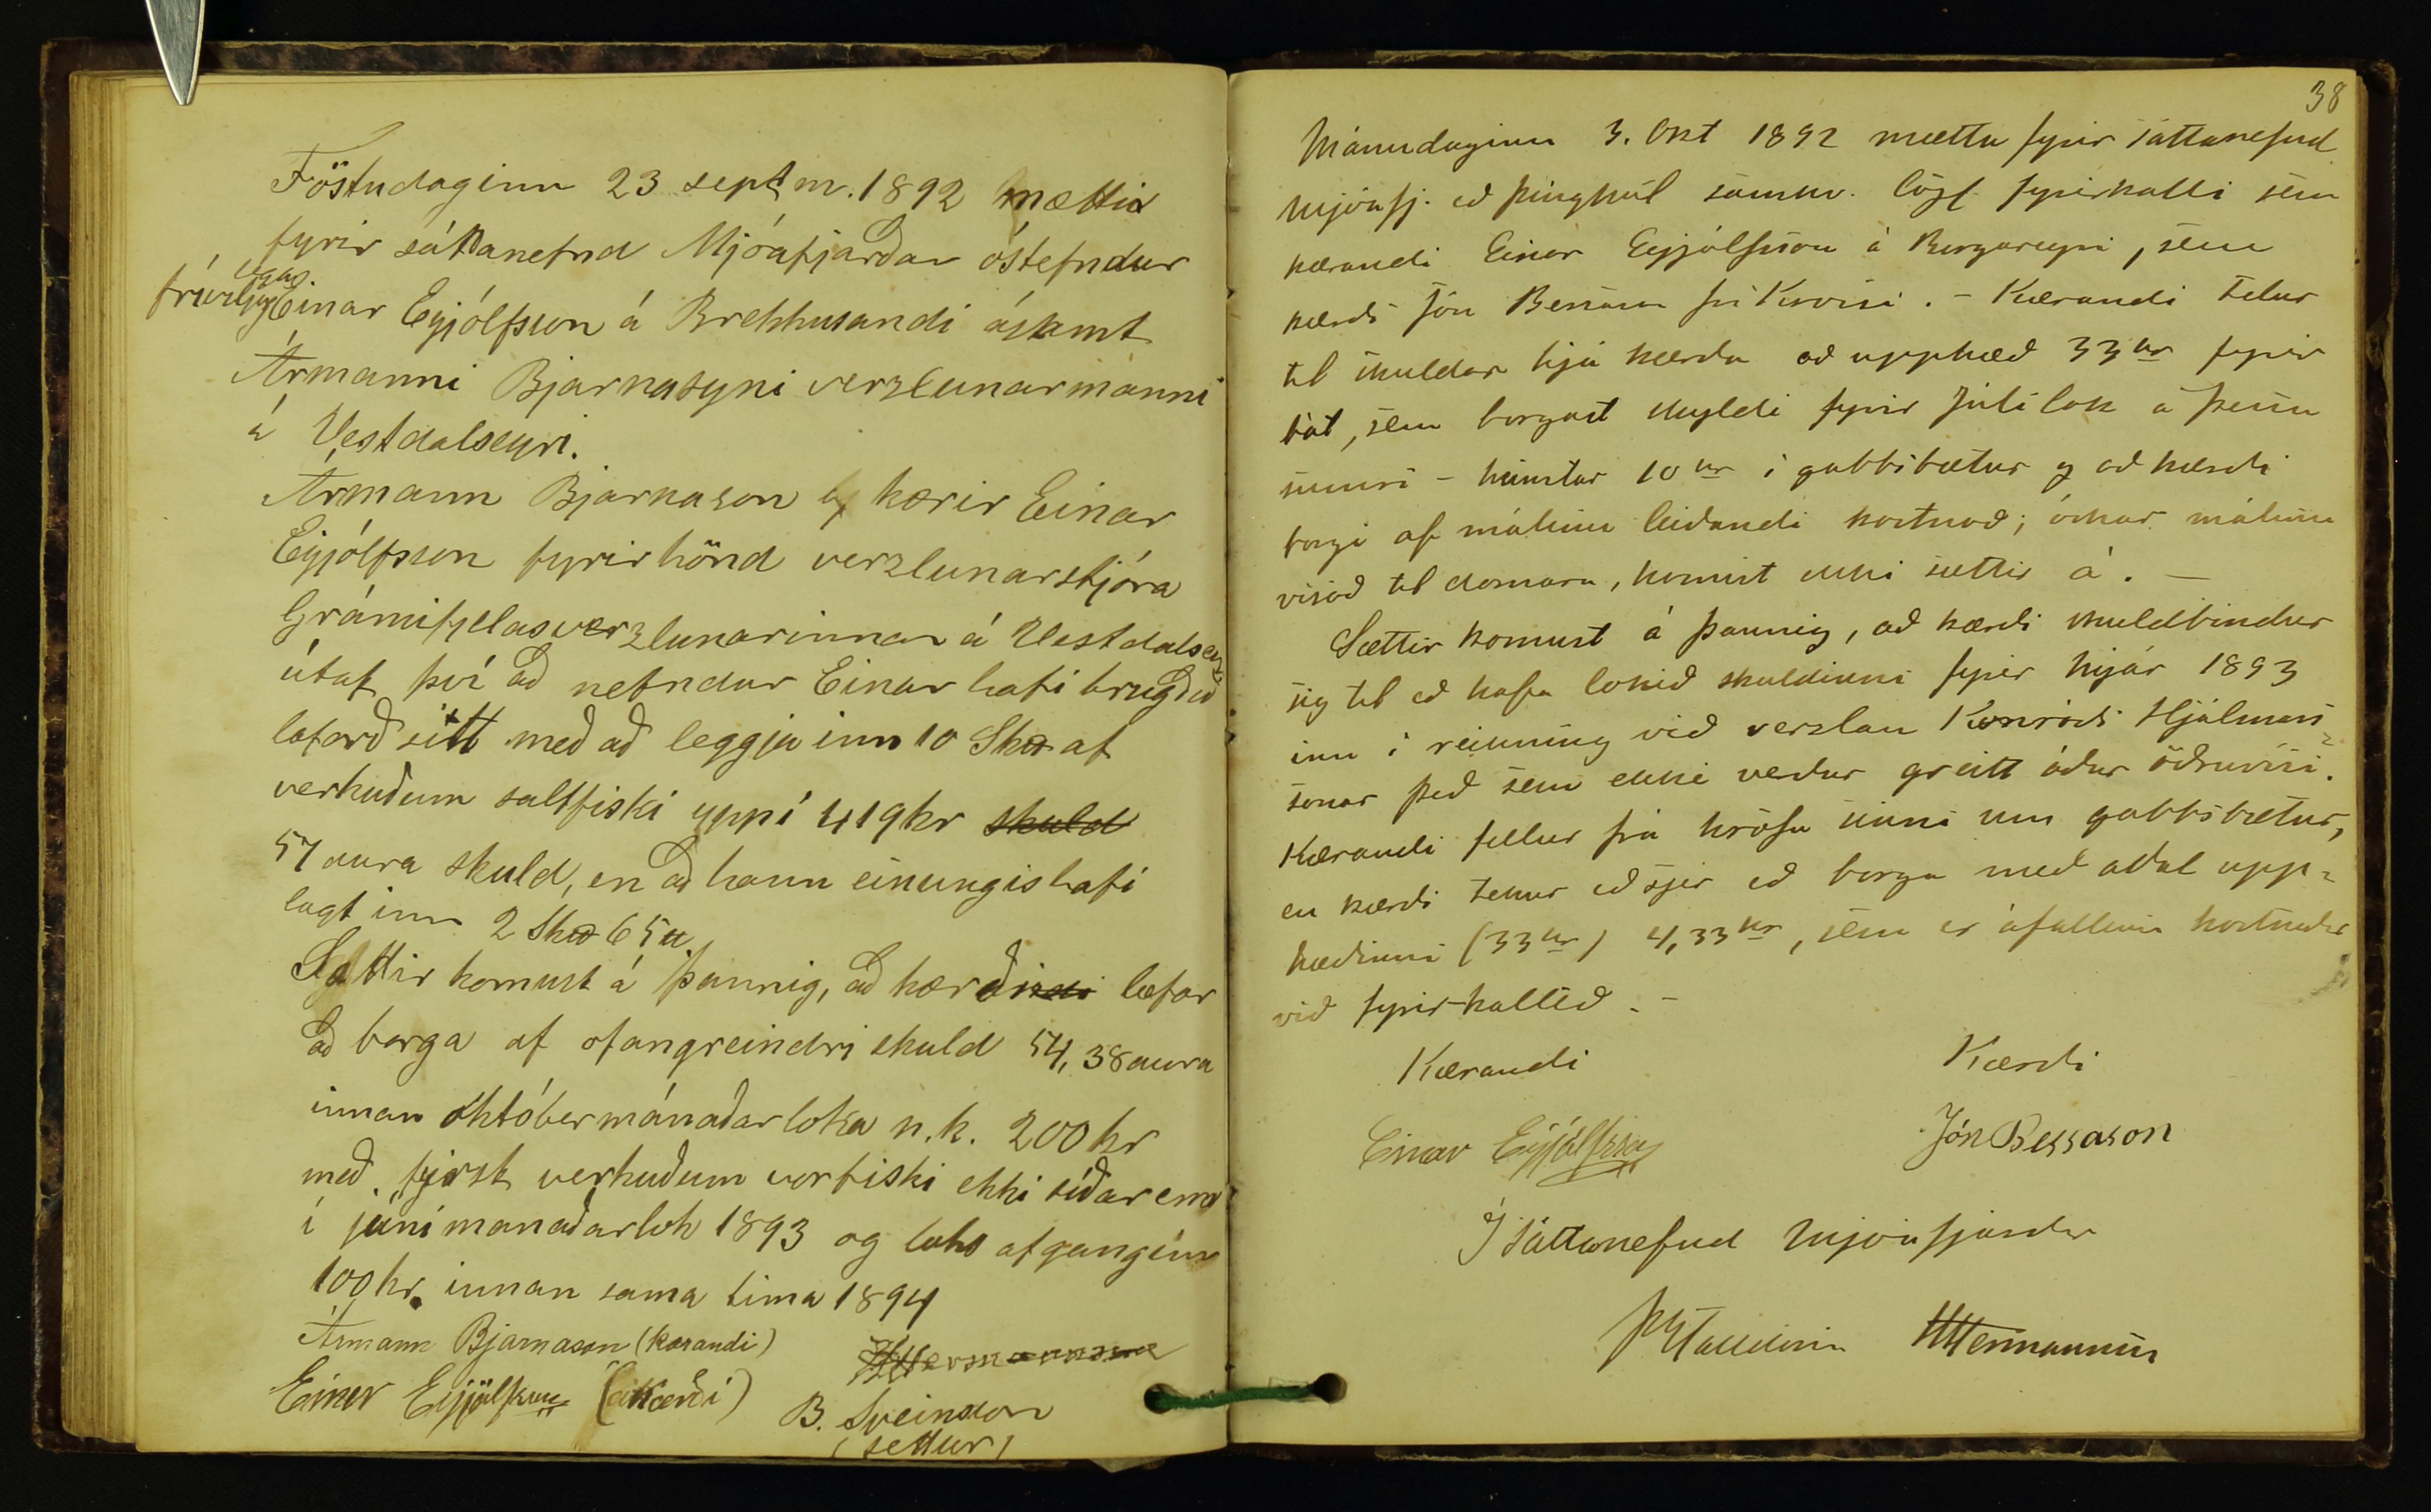 Föstudaginn 23 septm. 1892 mættir
fyrir sáttanefnd Mjóafjarðar óstefndur
fríviljuglegas Einar Eyjólfsson á Brekkusandi ásamt
Ármanni Bjarnasyni verzlunarmanni
á Vestdalseyri.
Ármann Bjarnason kærir Einar
Eyjólfsson fyrir hönd verzlunarstjóra
Gránufjelasverzlunarinnar á Vestdalseyri
útaf því að nefndur Einar hafi brugðið
loforð sitt með að leggja inn 10 Skd af
verkuðum saltfiski uppí 419 kr skuld
57 aura skuld, en að hann einungis hafi
lagt inn 2 Skd 65 u.
Sættir komust á þannig, að kærði lofar
að borga af ofangreindri skuld 54,38 aura
innan október mánaðarloka n.k. 200 kr
með fyrst verkuðum vorfiski ekki síðar enn
í júnímanaðarlok 1893 og loks afganginn
100 kr. innan sama tima 1894
Ármann Bjarnason (kærandi)
Einar Eyjólfsson (Kærði)
B. Sveinsson
(settur)
38
Mánudaginn 3. Okt 1892 mættu fyrir sáttanefnd
Mjóafj. að þinghúl samkv. lögl. fyrirkalli sem
kærandi Einar Eyjólfsson á Borgareyri, sem
kærði Jón Bessason frá Krossi. - Kærandi telur
til skuldar hjá kærða að upphæð 33 kr fyrir
bát, sem borgast skyldi fyrir Júlí lok á þessu
sumri - heimtar 10 kr í gabbsbætur og að kærði
borgi af málinu leiðandi kostnað; óskar málinu
vísað til domara, komist ekki sættir á. -
Sættir komust á þannig, að kærði skuldbindur
sig til að hafa lokið skuldinni fyrir Nýár 1893
inn í reikning við verzlan Konráðs Hjálmars-
sonar það sem ekki verður greitt áður öðruvísi.
Kærandi fellur frá kröfu sinni um gabbsbætur,
en kærði tekur að sjer að borga með aðal upp-
hæðinni (33 kr) 4,33 kr, sem er áfallinn kostnaður
við fyrirkallið. -
Kærandi Kærði
Einar Eyjólfsson Jón Bessason
Í Sáttanefnd Mjóafjarðar
HHermannsson